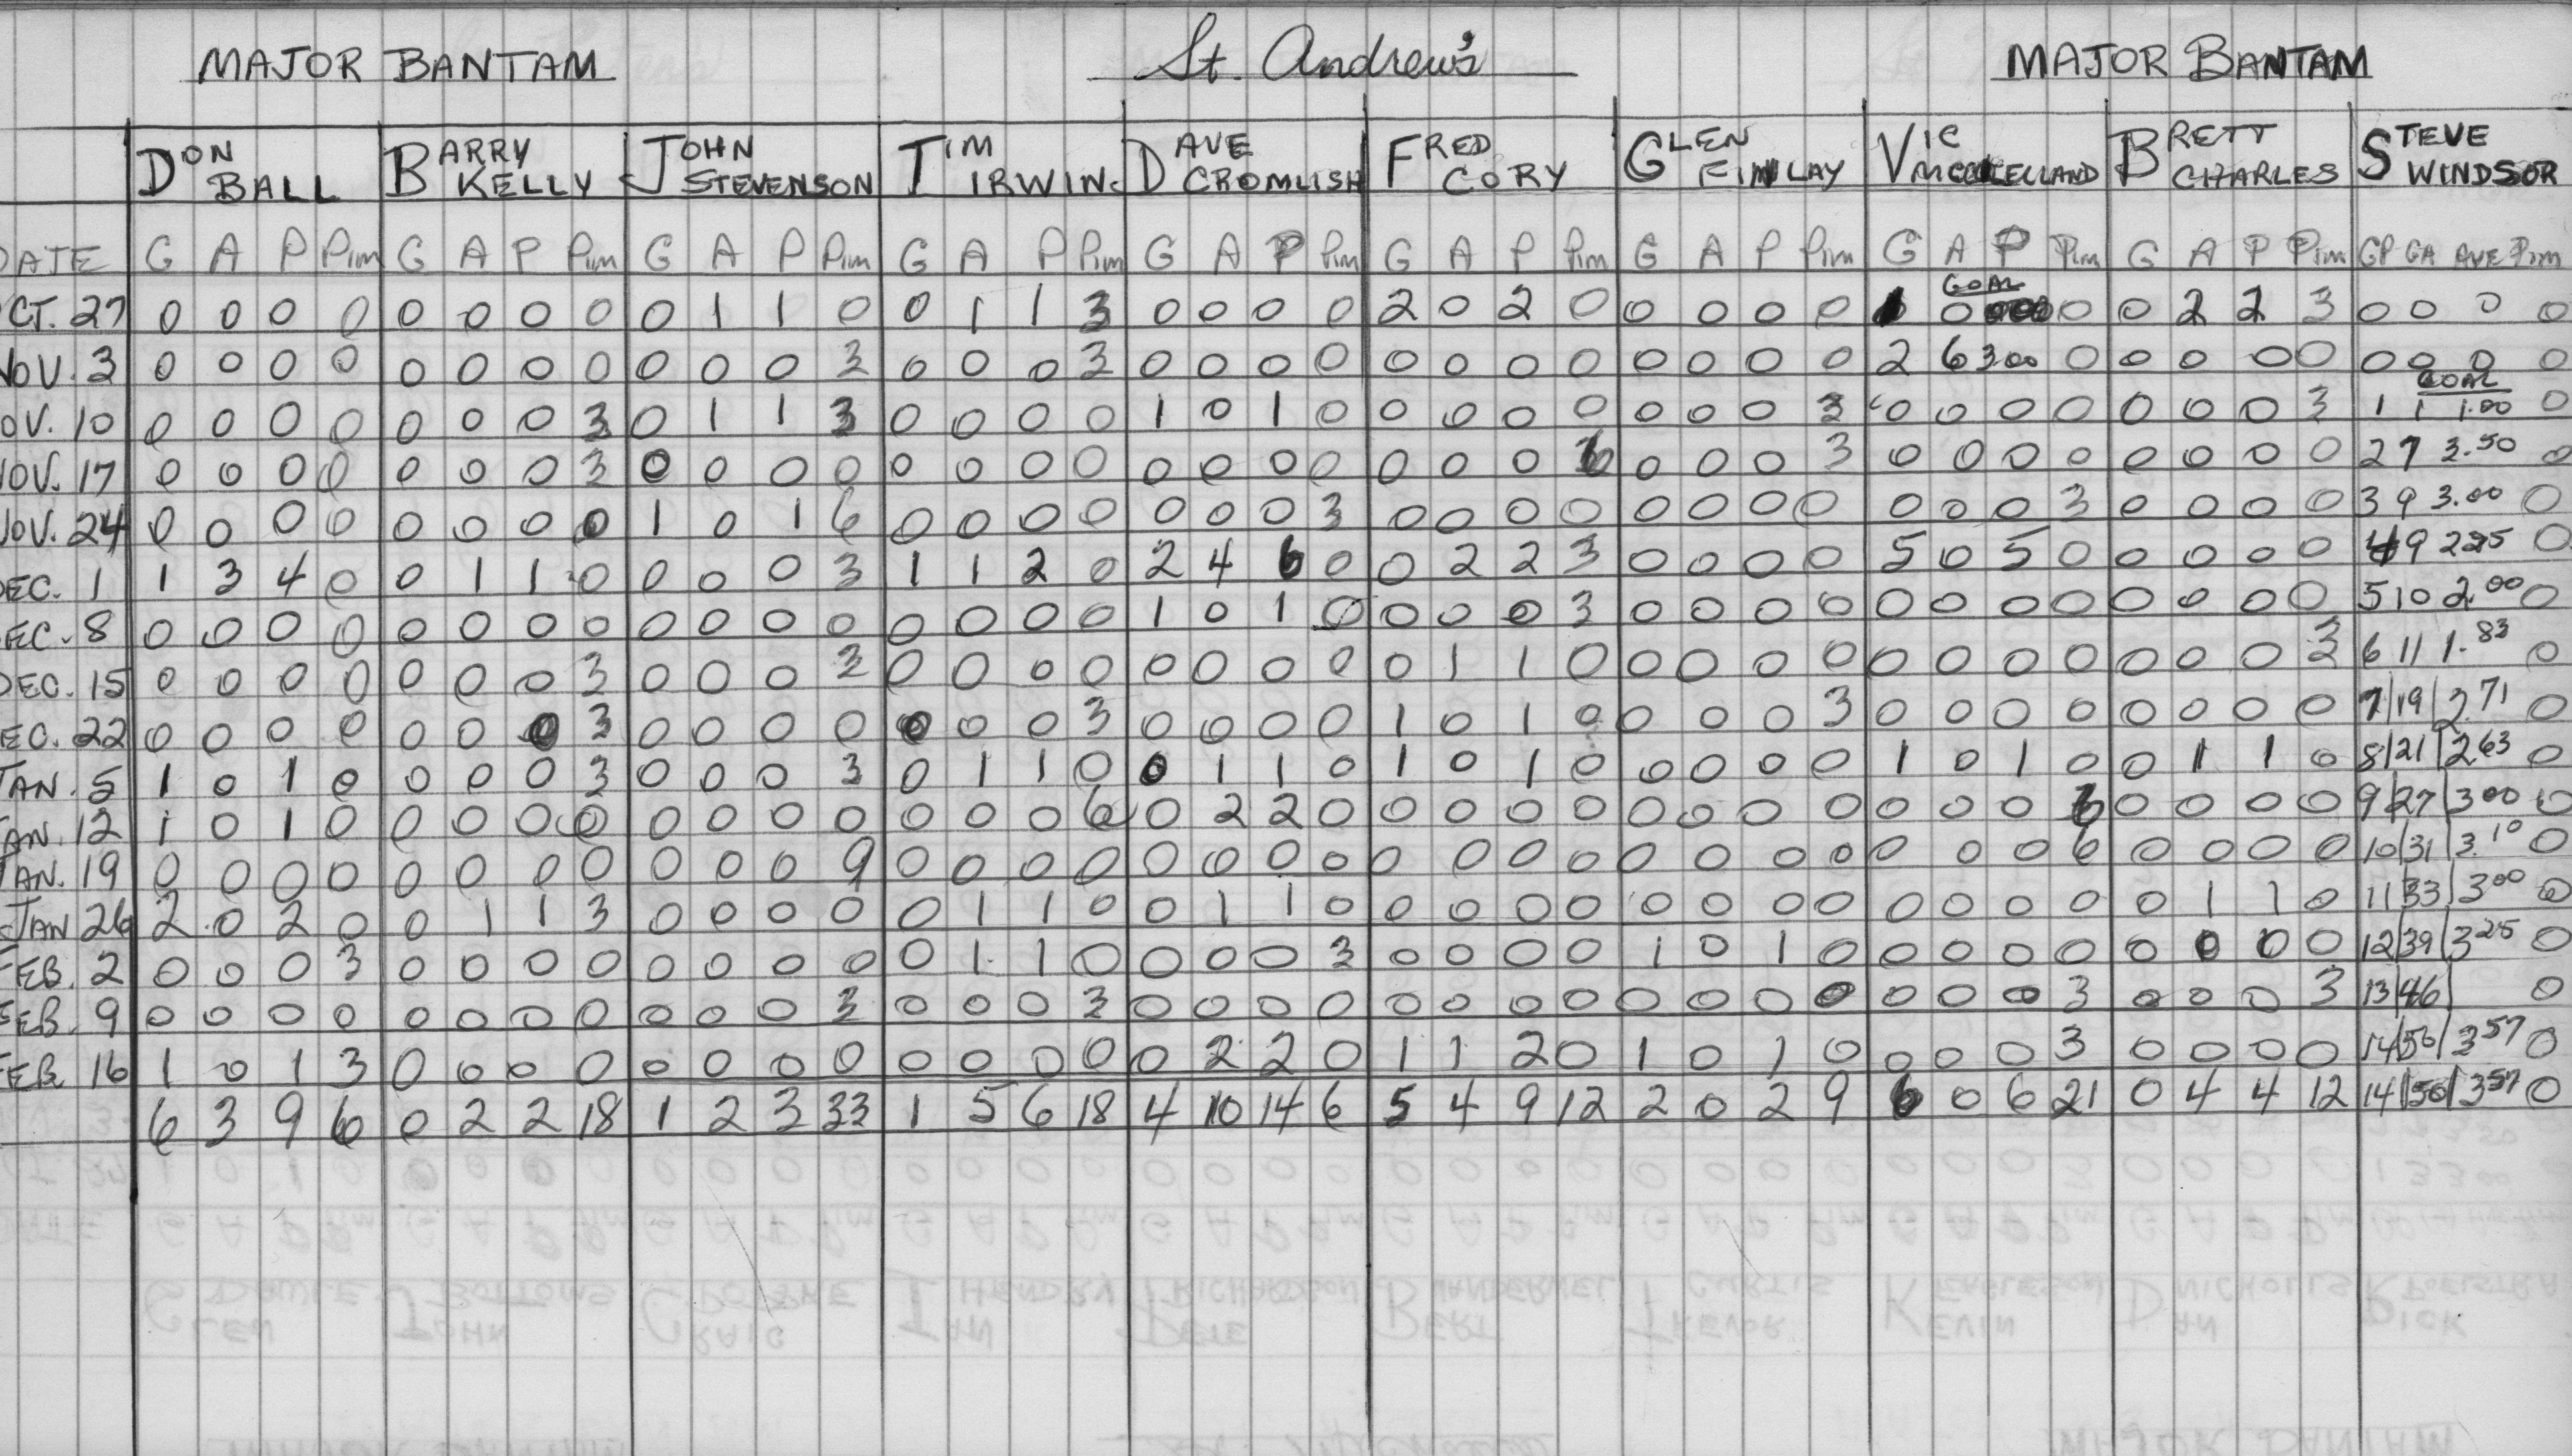 MAJOR BANTAM St. Andrew's MAJOR BANTAM
DON BALL BARRY KELLY JOHN STEVENSON TIM IRWIN DAVE CROMLISH FRED CORY GLEN FINLAY VIC BRETT CHARLES STEVE WINDSOR
DATE G A P Pim G A P Pim G A P Pim G A P Pim G A P Pim G A P Pim G A P Pim G A P Pim G A P Pim GP GA AVE Pim
GOAL
CT. 27 0 0 0 0 0 0 0 0 0 1 1 0 0 1 1 3 0 0 0 0 2 0 2 0 0 0 0 0 0 0 0 2 2 3 0 0 0 0
NOV. 3 0 0 0 0 0 0 0 0 0 0 0 3 0 0 0 3 0 0 0 0 0 0 0 0 0 0 0 0 2 6 3.00 0 0 0 0 0 0 0 0 0
GOAL
OV. 10 0 0 0 0 0 0 0 3 0 1 1 3 0 0 0 0 1 0 1 0 0 0 0 0 0 0 0 3 0 0 0 0 0 0 0 3 1 1 1.00 0
NOV. 17 0 0 0 0 0 0 0 3 0 0 0 0 0 0 0 0 0 0 0 0 0 0 0 0 0 0 3 0 0 0 0 0 0 0 0 2 7 3.50 0
NOV. 24 0 0 0 0 0 0 0 0 1 0 1 6 0 0 0 0 0 0 0 3 0 0 0 0 0 0 0 0 0 0 0 3 0 0 0 0 3 9 3.00 0
DEC. 1 1 3 4 0 0 1 1 0 0 0 0 3 1 1 2 0 2 4 6 0 0 2 2 3 0 0 0 0 5 0 5 0 0 0 0 0 4 9 2.25 0
DEC. 8 0 0 0 0 0 0 0 0 0 0 0 0 0 0 0 0 1 0 1 0 0 0 0 3 0 0 0 0 0 0 0 0 0 0 0 0 5 10 2.00 0
DEC. 15 0 0 0 0 0 0 0 3 0 0 0 3 0 0 0 0 0 0 0 0 0 1 1 0 0 0 0 0 0 0 0 0 0 0 0 3 6 11 1.83 0
EC. 22 0 0 0 0 0 0 0 3 0 0 0 0 0 0 0 3 0 0 0 0 1 0 1 0 0 0 0 3 0 0 0 0 0 0 0 0 7/19/2.71 0
JAN. 5 1 0 1 0 0 0 0 3 0 0 0 3 0 1 1 0 0 1 1 0 1 0 1 0 0 0 0 0 1 0 1 0 0 1 1 0 8/21/2.63 0
JAN. 12 1 0 1 0 0 0 0 0 0 0 0 0 0 0 0 6 0 2 2 0 0 0 0 0 0 0 0 0 0 0 0 0 0 0 0 9/27/3.00 0
JAN. 19 0 0 0 0 0 0 0 0 0 0 0 9 0 0 0 0 0 0 0 0 0 0 0 0 0 0 0 0 0 0 0 6 0 0 0 0 10/31/3.10 0
JAN 26 2 0 2 0 0 1 1 3 0 0 0 0 0 1 1 0 0 1 1 0 0 0 0 0 0 0 0 0 0 0 0 0 0 1 1 0 11/33/3.00 0
FEB. 2 0 0 0 3 0 0 0 0 0 0 0 0 0 1 1 0 0 0 0 3 0 0 0 0 1 0 1 0 0 0 0 0 0 0 0 0 12/39/3.25 0
FEB. 9 0 0 0 0 0 0 0 0 0 0 0 3 0 0 0 3 0 0 0 0 0 0 0 0 0 0 0 0 0 0 0 3 0 0 0 3 13/46/ 0
FEB. 16 1 0 1 3 0 0 0 0 0 0 0 0 0 0 0 0 0 2 2 0 1 1 2 0 1 0 1 0 0 0 0 3 0 0 0 0 14/50/3.57 0
6 3 9 6 0 2 2 18 1 2 3 33 1 5 6 18 4 10 14 6 5 4 9 12 2 0 2 9 6 0 6 21 0 4 4 12 14/50/3.57 0